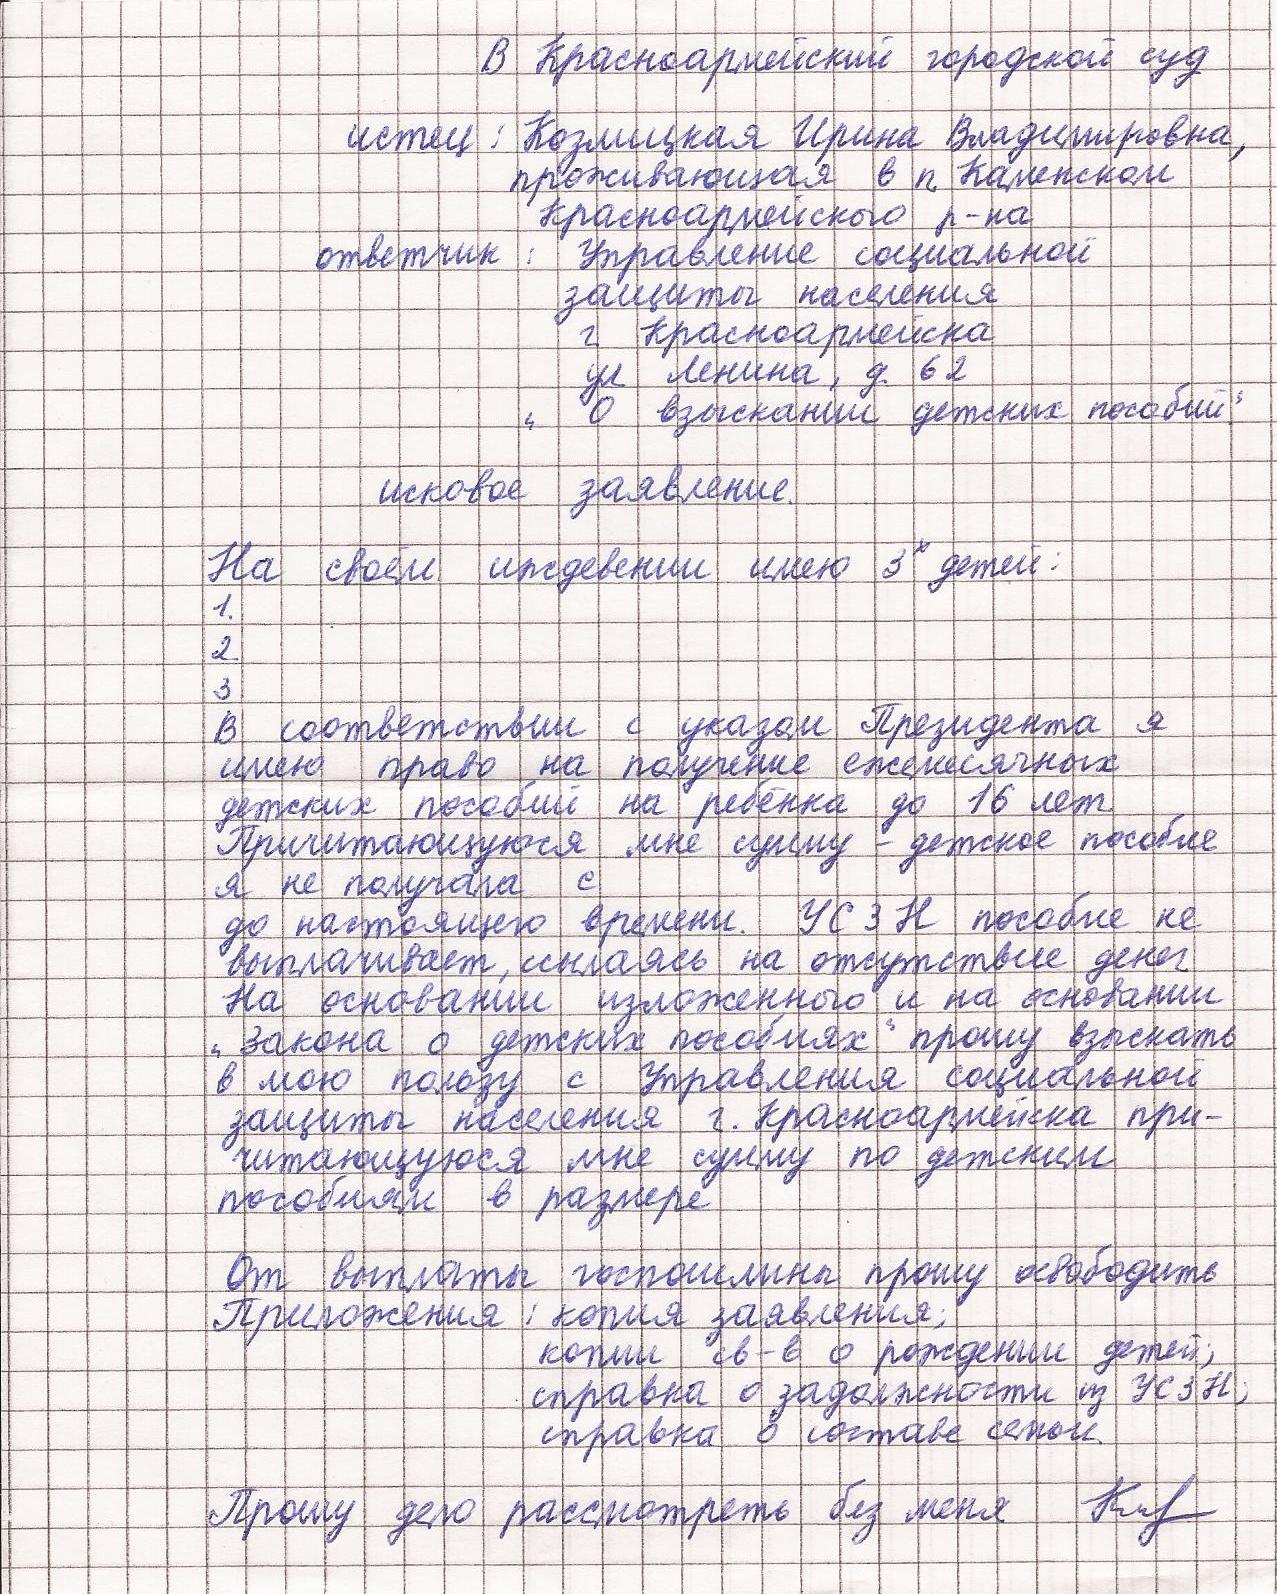 В Красноармейский городской суд
истец: Козмицкая Ирина Владимировна,
проживающая в п. Каменском
Красноармейского р-на
ответчик: Управление социальной
защиты населения
г Красноармейска
ул Ленина, д. 62
„О взыскании детских пособий"
исковое заявление.
На своём иждевении имею 3х детей:
1.
2
3
В соответствии с указом Президента я
имею право на получение ежемесячных
детских пособий на ребёнка до 16 лет.
Причитающуюся мне сумму - детское пособие
я не получала с
до настоящего времени. УСЗН пособие не
выплачивает, ссылаясь на отсутствие денег
На основании изложенного и на основании
„Закона о детских пособиях" прошу взыскать
в мою пользу с Управления социальной
защиты населения г. Красноармейска при-
читающуюся мне сумму по детским
пособиям в размере
От выплаты госпошлины прошу освободить
Приложения: копия заявления;
копии св-в о рождении детей;
справка о задолжности из УСЗН;
справка о составе семьи.
Прошу дело рассмотреть без меня